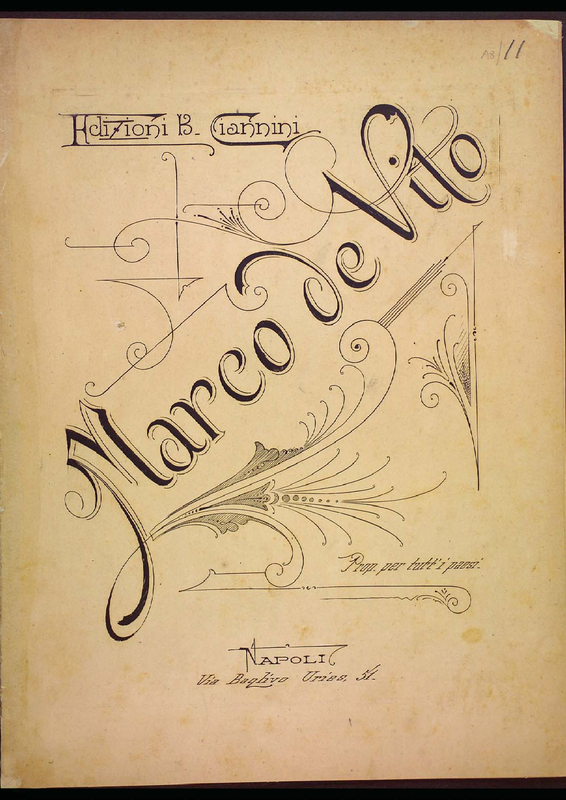 AB/11
Edizioni B. Giannini
Marco de Vito
Prop. per tutt'i paesi.
NAPOLI
Via Baglivo Uries, 51.